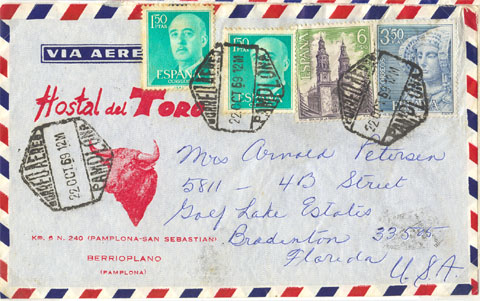 1.50
PTAS
ESPAÑA
CORREOS
1.50
PTAS
ESPAÑA
6
ESPAÑA
3.50
PTAS
VIA AEREA
CORREO AEREO
22 OCT 69 12M
PAMPLONA
CORREO AEREO
22 OCT 69 12M
PAMPLONA
Hostal del TORO
CORREO AEREO
22 OCT 69 12M
PAMPLONA
Mrs Arnold Petersen
5811 - 4B Street
Golf Lake Estates
Bradenton 33505
Florida
U.S.A.
Km. 6 N. 240 (PAMPLONA-SAN SEBASTIAN)
BERRIOPLANO
(PAMPLONA)